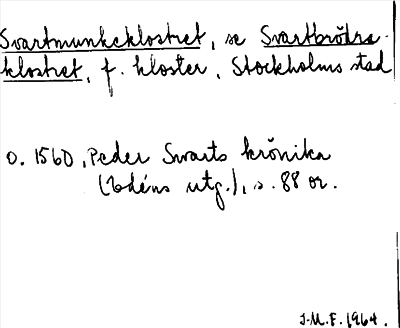 Svartmunkeklostret, se Svartbrödra-
klostret, f. kloster, Stockholms stad
o. 1560, Peder Swarts krönika
(Edéns utg.), s. 88 or.
J.M.F. 1964.